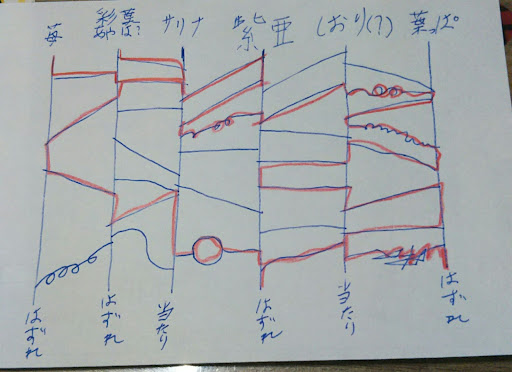 苺 彩葉は? サリナ 紫亜 しおり(?) 葉っぱ
はずれ はずれ 当たり はずれ 当たり はずれ